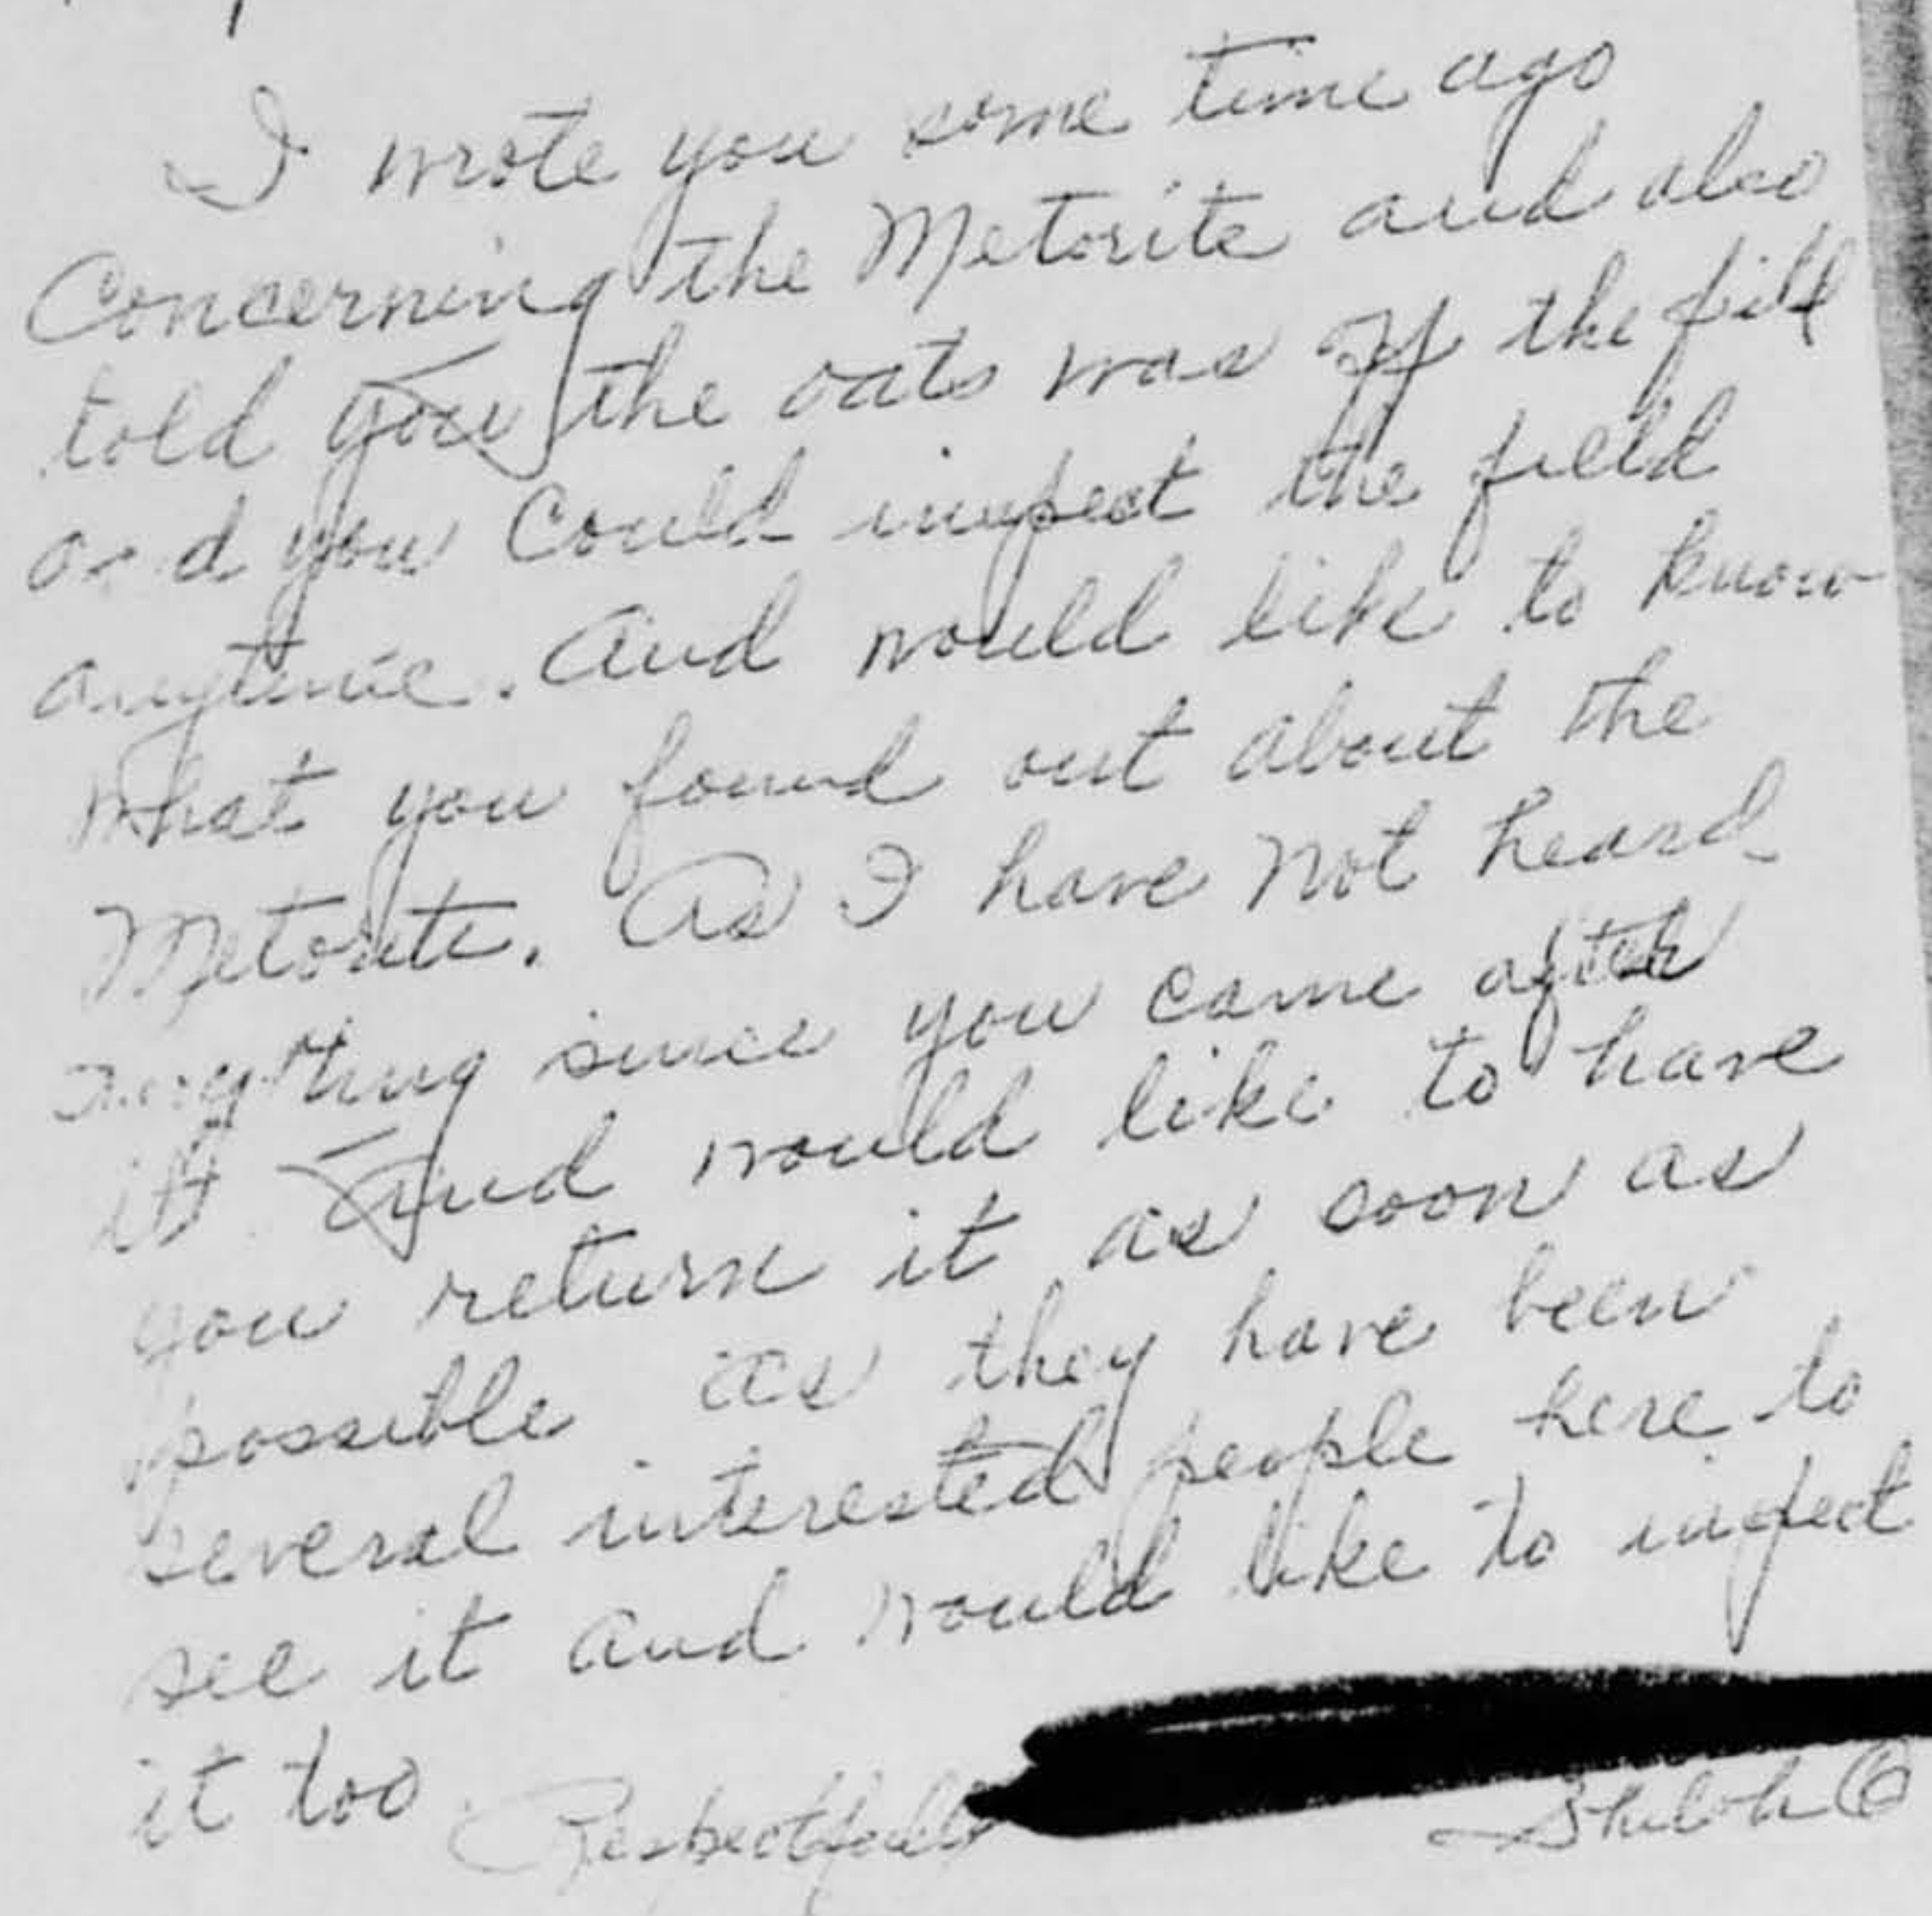 I wrote you some time ago
Concerning the Metorite and also
told you the oats was off the fild
and you Could inspect the field
anytime. And would like to know
what you found out about the
Metorite. As I have not heard
anything since you came after
it And would like to have
you return it as soon as
possible as they have been
several interested people here to
see it and would like to inspect
it too
Respectfully
Shiloh O